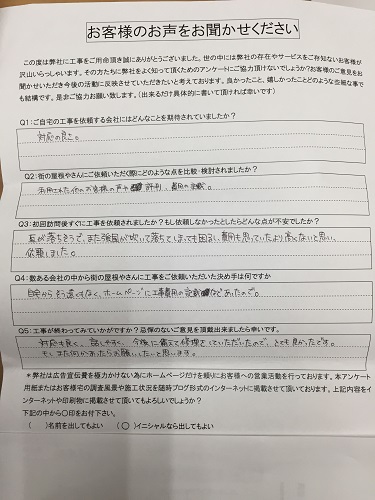 お客様のお声をお聞かせください
この度は弊社に工事をご用命頂き誠にありがとうございました。世の中には弊社の存在やサービスをご存知ないお客様が
沢山いらっしゃいます。その方たちに弊社をよく知って頂くためのアンケートにご協力頂けないでしょうか?お客様のご意見をお
聞かせいただき今後の活動に反映させていただきたいと考えております。良かったこと、嬉しかったことどのような些細な事で
も結構です。是非ご協力お願い致します。(出来るだけ具体的に書いて頂ければ幸いです)
Q1:ご自宅の工事を依頼する会社にはどんなことを期待されていましたか?
対応の良さ。
Q2:街の屋根やさんにご依頼いただく際にどのような点を比較・検討されましたか?
利用された他のお客様の声や 評判、費用の記載。
Q3:初回訪問後すぐに工事を依頼されましたか?もし依頼しなかったとしたらどんな点が不安でしたか?
瓦が落ちそうで、また強風が吹いて落ちてしまっても困るし、費用も思っていたより高くないと思い、
依頼しました。
Q4:数ある会社の中から街の屋根やさんに工事をご依頼いただいた決め手は何ですか
自宅からそう遠くもなく、ホームページに工事費用の記載などあったので。
Q5:工事が終わってみていかがですか?忌憚のないご意見を頂戴出来ましたら幸いです。
対応も良く、話しやすく、今後に備えて修理をしていただいたので、とても良かったです。
もしまた何かあったらお願いしたいと思います。
*弊社は広告宣伝費を極力かけない為にホームページだけを頼りにお客様への営業活動を行っております。本アンケート
用紙またはお客様宅の調査風景や施工状況を随時ブログ形式のインターネットに掲載させて頂いております。上記内容をイ
ンターネットや印刷物に掲載させて頂いてもよろしいでしょうか?
下記の中から〇印をお付下さい。
( )名前を出してもよい (〇)イニシャルなら出してもよい